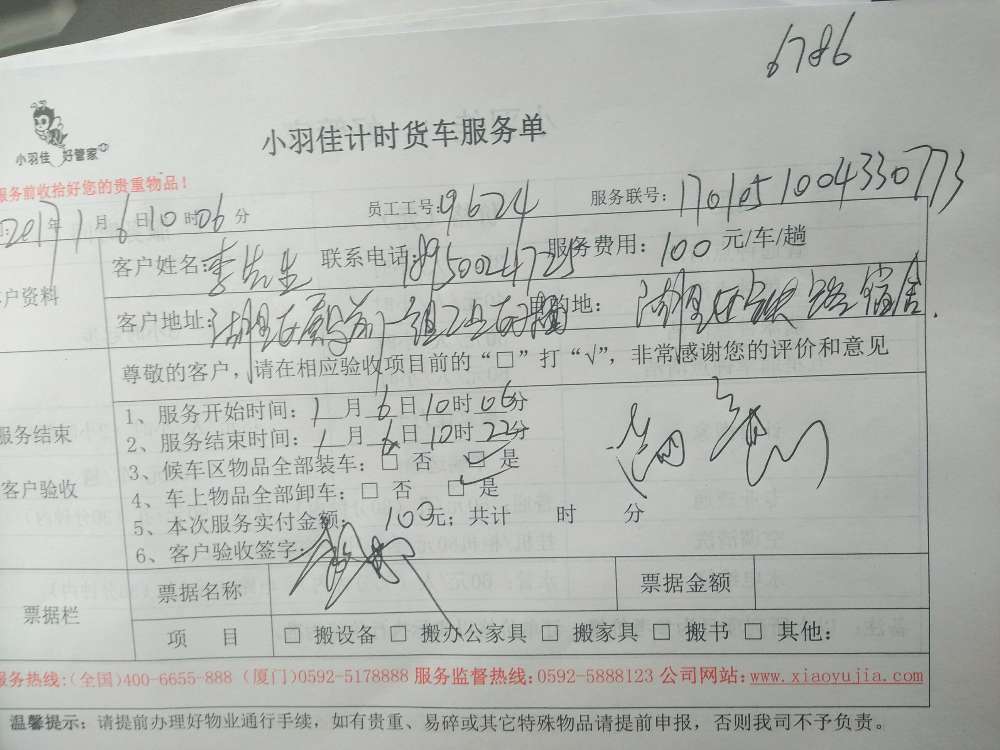 6786
小羽佳 好管家
小羽佳计时货车服务单
服务前收拾好您的贵重物品！
2017年1月6日10时06分 员工工号:9624 服务联号:1701051004330773
客户资料
客户姓名:李先生 联系电话:18950024725 服务费用:100元/车/趟
客户地址:湖里区 目的地:湖里区铁路宿舍.
尊敬的客户,请在相应验收项目前的“□”打“√”,非常感谢您的评价和意见
服务结束
客户验收
1、服务开始时间:1月6日10时06分
2、服务结束时间:1月6日10时22分
3、候车区物品全部装车:□ 否 ☑ 是
4、车上物品全部卸车:□ 否 ☑ 是
5、本次服务实付金额: 100元;共计 时 分
6、客户验收签字:
票据栏
票据名称 票据金额
项 目 □ 搬设备 □ 搬办公家具 □ 搬家具 □ 搬书 □ 其他:
服务热线:(全国)400-6655-888 (厦门)0592-5178888 服务监督热线:0592-5888123 公司网站:www.xiaoyujia.com
温馨提示:请提前办理好物业通行手续,如有贵重、易碎或其它特殊物品请提前申报,否则我司不予负责。